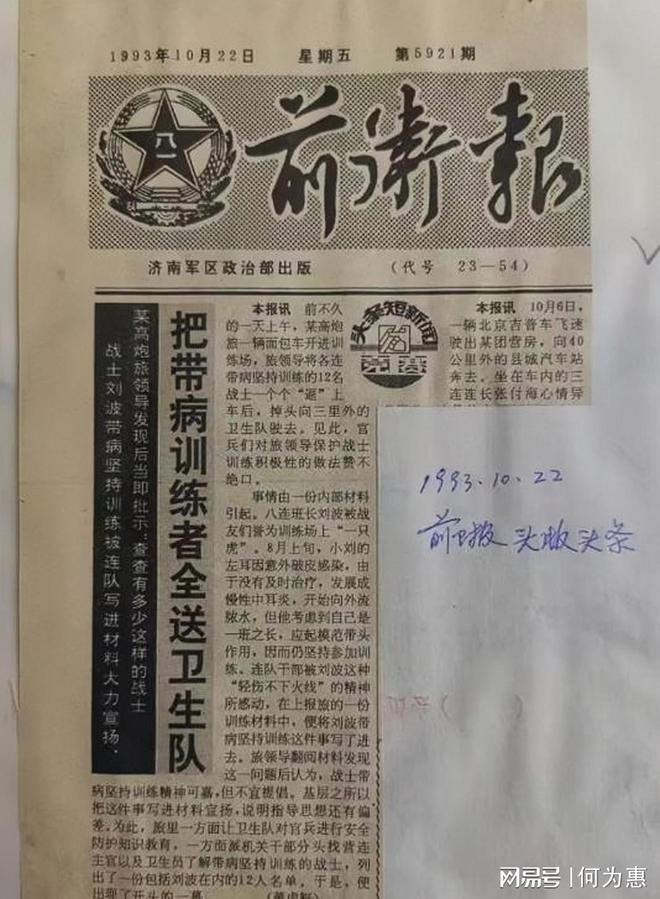 1993年10月22日 星期五 第5921期
八一
前衛報
济南军区政治部出版 (代号 23—54)
战士刘波带病坚持训练被连队写进材料大力宣扬，
某高炮旅领导发现后当即批示：查查有多少这样的战士
把带病训练者全送卫生队
本报讯 前不久
的一天上午，某高炮
旅一辆面包车开进训
练场，旅领导将各连
带病坚持训练的12名
战士一个个“逼”上
车后，掉头向三里外的
卫生队驶去。见此，官
兵们对旅领导保护战士
训练积极性的做法赞不
绝口。
事情由一份内部材料
引起。八连班长刘波被战
友们誉为训练场上“一只
虎”。8月上旬，小刘的
左耳因意外破皮感染，由
于没有及时治疗，发展成
慢性中耳炎，开始向外流
脓水，但他考虑到自己是
一班之长，应起模范带头
作用，因而仍坚持参加训
练。连队干部被刘波这种
“轻伤不下火线”的精神
所感动，在上报旅的一份
训练材料中，便将刘波带
病坚持训练这件事写了进
去。旅领导翻阅材料发现
这一问题后认为，战士带
病坚持训练精神可嘉，但不宜提倡。基层之所以
把这件事写进材料宣扬，说明指导思想还有偏
差。为此，旅里一方面让卫生队对官兵进行安全
防护知识教育，一方面派机关干部分头找营连
主官以及卫生员了解带病坚持训练的战士，列
出了一份包括刘波在内的12人名单。于是，便
出现了开头的一幕。
头条短新闻
竞赛
本报讯 10月6日，
一辆北京吉普车飞速
驶出某团营房，向40
公里外的县城汽车站
奔去。坐在车内的三
连连长张付海心情异
1993.10.22
前卫报 头版头条
网易号 | 何为惠